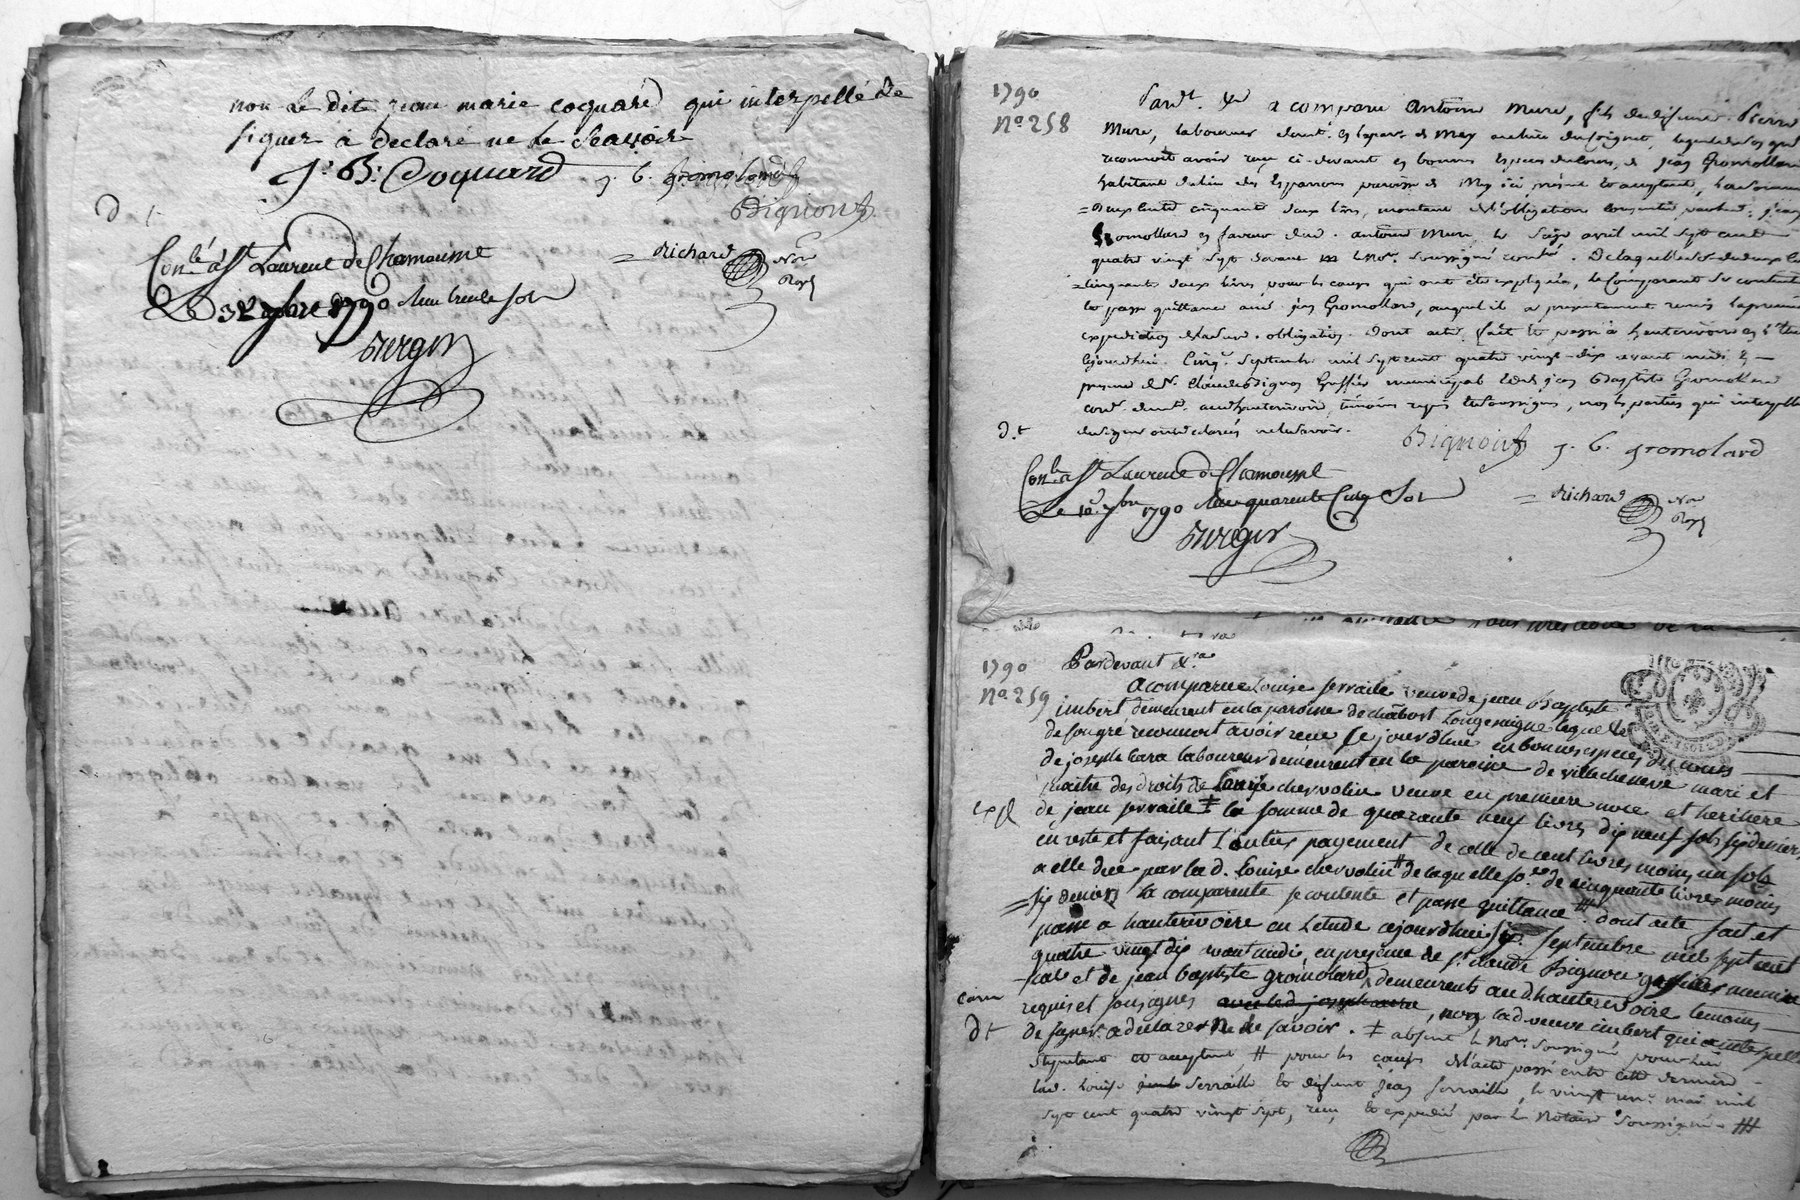 non Le dit jean marie coquard qui interpellé de
signer a declaré ne le Scavoir
J. B. Coquard j. b. gromolard
Bignon
d t
Con.lé a St Laurent de Chamousset = Richard Not
Le 7bre 1790 Reçu trente sols Royl
Verger
1790
N.o 258
Pard.t &a a comparu Antoine Mure, fils du défunt Pierre
Mure, laboureur demt en la par. de Mey , lequel de son gré
reconnoit avoir reçu ci-devant en bonnes Espèces du cours, de jean Gromollard
habitant du lieu des Esparrons paroisse de Mey ici présent et acceptant, la somme
= Deux cents cinquante deux livres, montant de l'obligation consentie par led. jean
Gromollard en faveur dud. antoine Mure, le Seize avril mil sept cent
quatre vingt sept devant le Not.e soussigné . De laquelle de deux cent
= Cinquante deux livres pour les causes qui ont été expliquées, le Comparant se contente
et passe quittance aud. jean Gromollard, auquel il a présentement remis la première
expedition de lad. obligation. Dont acte, fait et passé à hauterivoire en l'étude
cejourdhui Cinq Septembre mil sept cent quatre vingt-dix avant midi En
présence de Sr. Claude Bignon Greffier municipal et de jean Baptiste Gromollard
cord. demt. aud hauterivoire, témoins requis et soussignés, non les parties qui interpellées
de signer ont déclaré ne le savoir.
d.t
Bignon j. b. gromolard
Con.lé a St Laurent de Chamousset
Le 10e 7bre 1790 Reçu quarente Cinq Sols = Richard Not
Royl
Verger
1790
N.o 259
Pardevant &.ra
a comparue Louise serraille veuve de jean Baptiste
imbert demeurent en la paroisse de chabost Longesaigne laquelle
de son gré reconnoit avoir reçu ce jourdhui en bonnes especes du cours
de joseph bara laboureur demeurent en la paroisse de villecheneve mari et
maitre des droits de Louise chervolin veuve en premiere noce et heritiere
de jean serraille ‡ la somme de quarante neuf livres dix neuf sols six deniers
en reste et faisant l'entier payement de celle de cent livres moins un sols
a elle due par lad. Louise chervolin # de laquelle so.e de cinquante livres moins
= six deniers la comparente se contente et passe quittance ⧻ dont acte fait et
passé a hauterivoire en Letude cejourdhui six septembre mil sept cent
quatre vingt dix avant midi, en presence de sr. claude Bignon greffier munici-
-pal et de jean baptiste gromolard demeurents aud hauterivoire temoins
requis et sousignes avec led joseph bara, non lad veuve imbert qui interpellé
de signer a declarer ne le savoir. ‡ absent le Not.e soussigné pour lui
d t
stipulant et acceptant # pour les causes de l'acte passé entre cette derniere
lad. Louise Serraille et défunt jean serraille, le vingt un mai mil
sept cent quatre vingt sept, reçu et expédié par le Notaire soussigné. ⧻